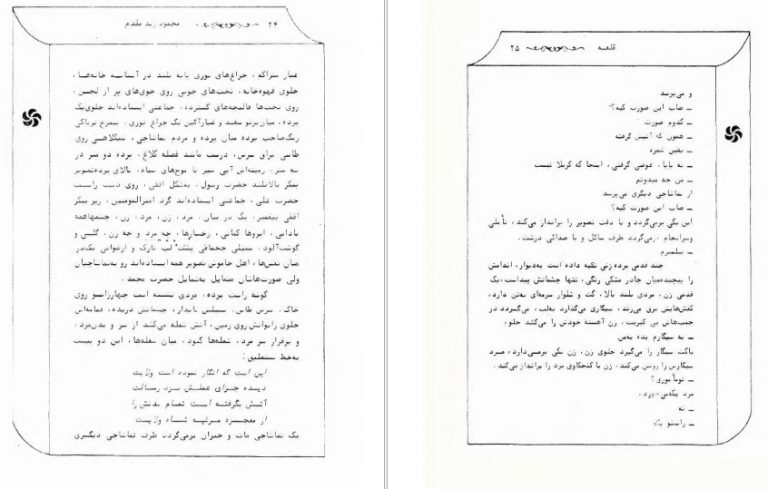 ۲۴ محمود زند مقدم
غبار متراکم، چراغ‌های توری پایه بلند در آستانه خانه‌ها،
جلوی قهوه‌خانه، تخت‌های چوبی روی جوی‌های پر از لجن،
روی تخت‌ها قالیچه‌های گسترده، جماعتی ایستاده‌اند جلوی یک
پرده، میان پرتو سفید و غبارآگین یک چراغ توری،
رنگ صاحب پرده میان پرده و مردم تماشاچی،
طاسی براق سرش، درست مانند فضله کلاغ، پرده دو متر در
سه متر، زمینه‌اش آبی سیر با موج‌های سیاه، بالای پرده تصویر
پیکر بالابلند حضرت رسول، به‌شکل افقی، روی دست راست
حضرت علی، جماعتی ایستاده‌اند گرد امیرالمومنین، زیر پیکر
افقی پیغمبر، یک در میان، مرد، زن، مرد، زن، چشمها همه
بادامی، ابروها کمانی، رخسارها، چه مرد و چه زن، گلی و
گوشت‌آلود، سبیلی چخماقی پشت لب نازک و ارغوانی یک‌در
میان نقش‌ها، اهل خاموش تصویر همه ایستاده‌اند رو به‌تماشاچیان
ولی صورت‌هاشان متمایل به‌شمایل حضرت محمد.
گوشه راست پرده، مردی نشسته است چهارزانو روی
خاک، سرش طاس، سبیلش تابدار، چشمانش دریده، عمامه‌اش
جلوی زانوانش روی زمین، آتش شعله می‌کشد از سر و بدن مرد،
و برفراز سر مرد، شعله‌ها کبود، میان شعله‌ها، این دو بیت
به‌خط نستعلیق:
این است که انکار نموده است ولایت
دیده جزای عملش نزد رسالت
آتش بگرفته است تمام بدنش را
از معجزه مرتبه شاه ولایت
یک تماشاچی مات و حیران برمی‌گردد طرف تماشاچی دیگری
قلعه ۲۵
و می‌پرسد
ــ صاب این صورت کیه؟
ــ کدوم صورت
ــ همون که آتیش گرفته
ــ یقین شمره
ــ نه بابا، عوضی گرفتی، اینجا که کربلا نیست
ــ من چه میدونم
از تماشاچی دیگری می‌پرسد
ــ صاب این صورت کیه؟
این یکی برمی‌گردد و با دقت تصویر را برانداز می‌کند، تأملی
و سرانجام برمی‌گردد طرف سائل و با صدائی درشت.
چند قدمی پرده زنی تکیه داده است به‌دیوار، اندامش
را پیچیده میان چادر مشکی رنگی، تنها چشمانش پیداست، یک
قدمی زن، مردی بلند بالا، کت و شلوار سرمه‌ای به‌تن دارد،
کفش‌هایش برق می‌زند، سیگاری می‌گذارد به‌لب، می‌گردد در
جیب‌هاش پی کبریت، زن آهسته خودش را می‌کشد جلو،
ــ یه سیگارم بده به‌من
پاکت سیگار را می‌گیرد جلوی زن، زن یکی برمی‌دارد، مرد
سیگارش را روشن می‌کند، زن با کنجکاوی مرد را برانداز می‌کند.
ــ تو مأموری؟
مرد یکه می‌خورد،
ــ نه
ــ راستو بگو